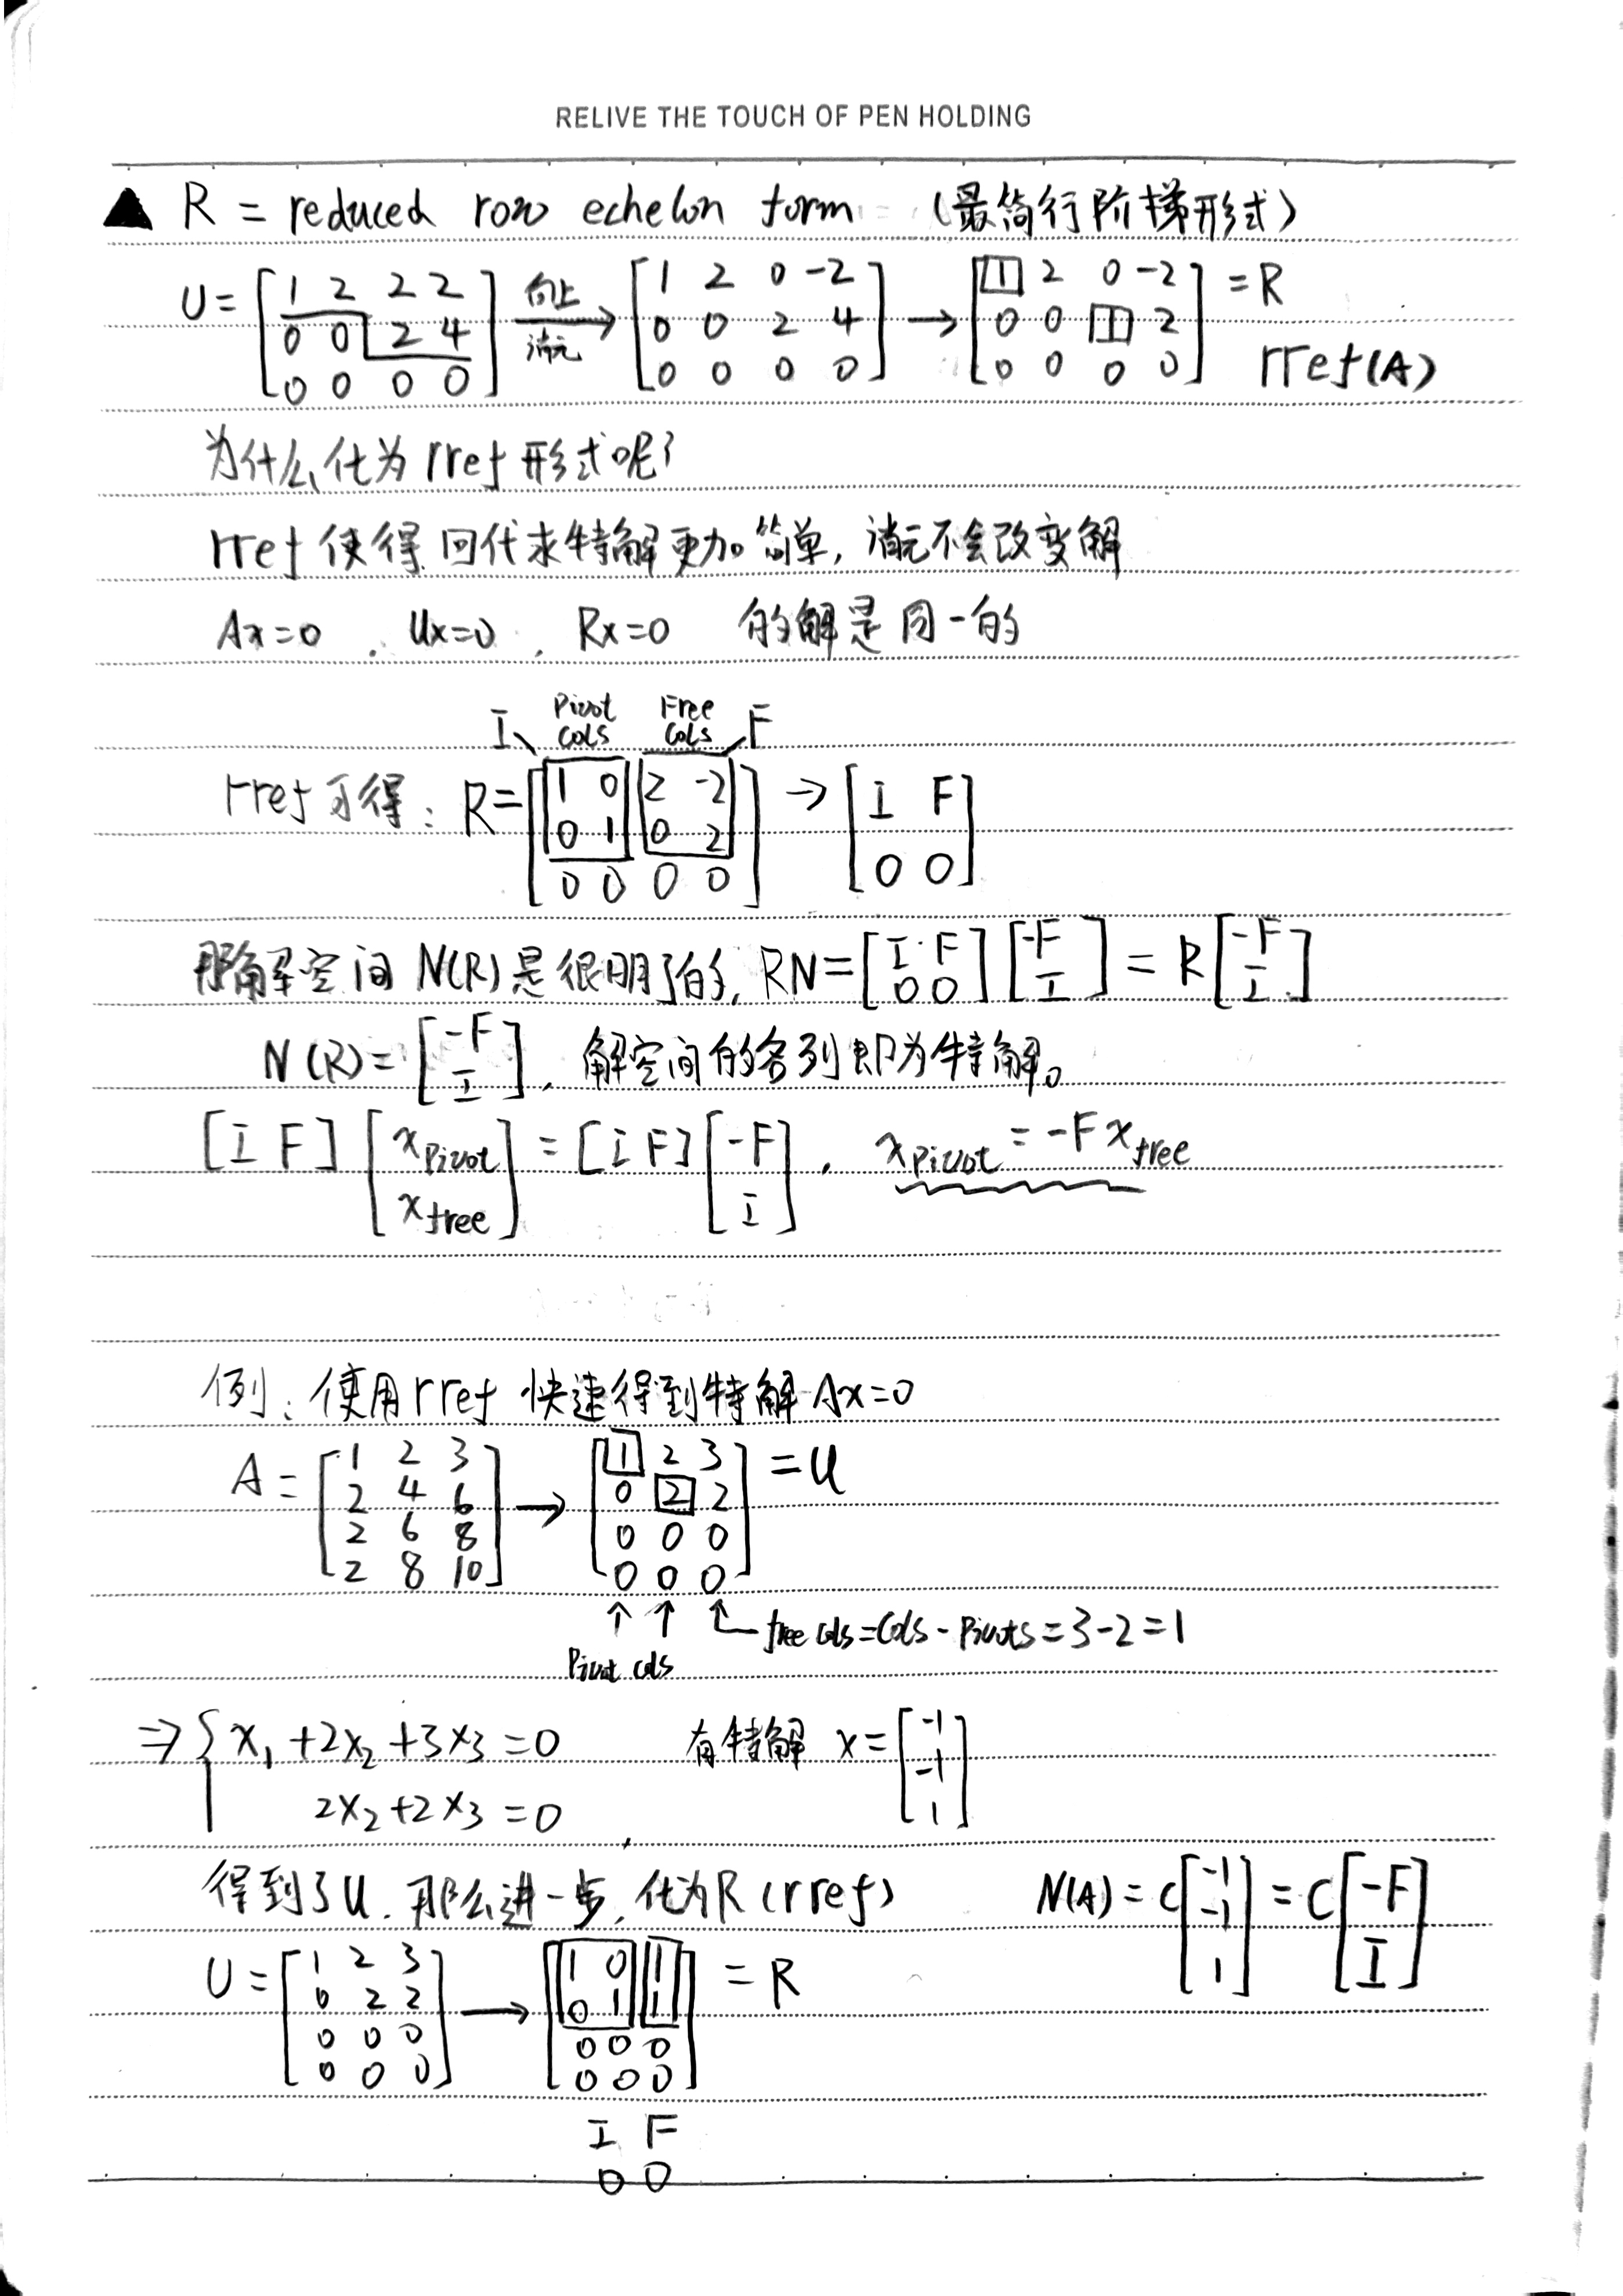 RELIVE THE TOUCH OF PEN HOLDING
▲ R = reduced row echelon form (最简行阶梯形式)
U = [1 2 2 2; 0 0 2 4; 0 0 0 0] 向上消元→ [1 2 0 -2; 0 0 2 4; 0 0 0 0] → [1 2 0 -2; 0 0 1 2; 0 0 0 0] = R rref(A)
为什么化为rref形式呢?
rref使得回代求特解更加简单, 消元不会改变解
Ax=0 . Ux=0 . Rx=0 的解是同一的
I Pivot cols Free cols F
rref可得: R = [1 0 2 -2; 0 1 0 2; 0 0 0 0] → [I F; 0 0]
那解空间 N(R)是很明了的, RN = [I F; 0 0] [-F; I] = R [-F; I]
N(R) = [-F; I] , 解空间的各列即为特解。
[I F] [xpivot; xfree] = [I F] [-F; I] , xpivot = -F xfree
例: 使用rref 快速得到特解 Ax=0
A = [1 2 3; 2 4 6; 2 6 8; 2 8 10] → [1 2 3; 0 2 2; 0 0 0; 0 0 0] = U
↑ ↑ ↑ free cols = Cols - Pivots = 3-2 = 1
Pivot cols
⇒ { x1 + 2x2 + 3x3 = 0 有特解 x = [-1; -1; 1]
2x2 + 2x3 = 0
得到了U. 那么进一步, 化为R (rref) N(A) = C [-1; -1; 1] = C [-F; I]
U = [1 2 3; 0 2 2; 0 0 0; 0 0 0] → [1 0 1; 0 1 1; 0 0 0; 0 0 0] = R
I F
0 0